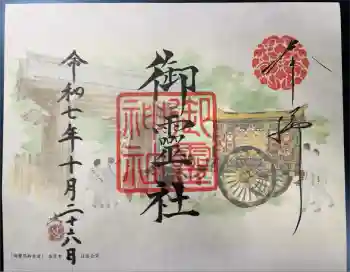 奉拝
御靈社
御靈神社
令和七年十月二十六日